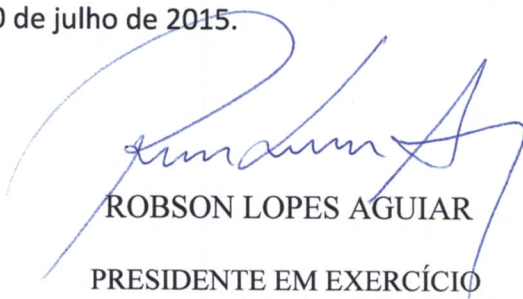 0 de julho de 2015.
ROBSON LOPES AGUIAR
PRESIDENTE EM EXERCÍCIO